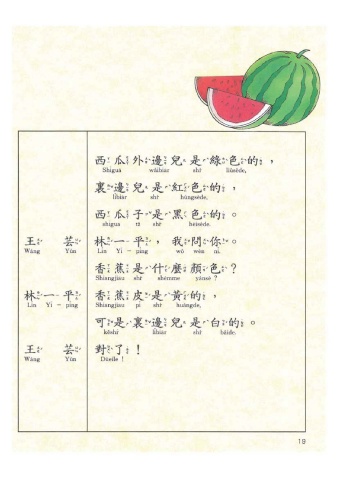 西瓜外邊兒是綠色的，
Shīguā wàibiar shr̀ liùsède,
裏邊兒是紅色的，
lǐbiar shr̀ húngsède,
西瓜子是黑色的。
shīguā tž shr̀ hēisède.
王芸 林一平，我問你。
Wáng Yún Lín Yi - píng wǒ wèn nǐ.
香蕉是什麼顏色？
Shiāngjiāu shr̀ shémme yánsè?
林一平 香蕉皮是黃的，
Lín Yi - píng Shiāngjiāu pí shr̀ huángde,
可是裏邊兒是白的。
kěshr̀ lǐbiar shr̀ báide.
王芸 對了！
Wáng Yún Duèile!
19